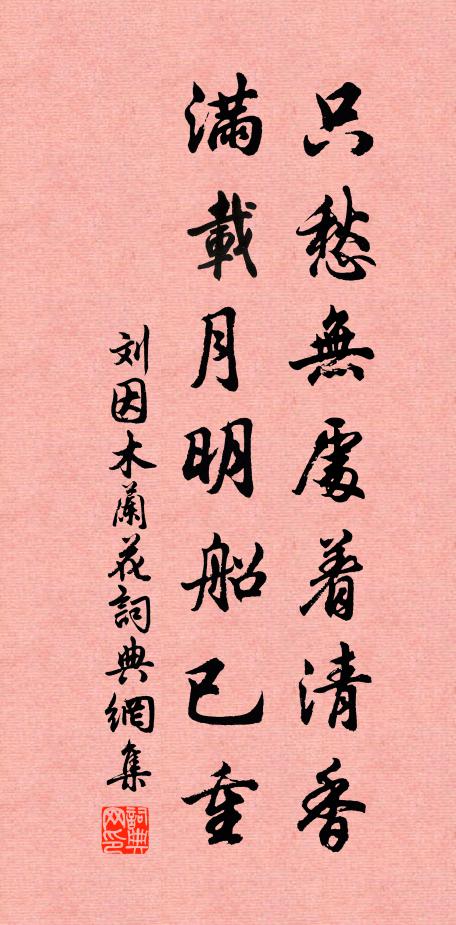 只愁無處着清香
滿載月明船已重
刘因木蘭花詞典網集
詞典网印